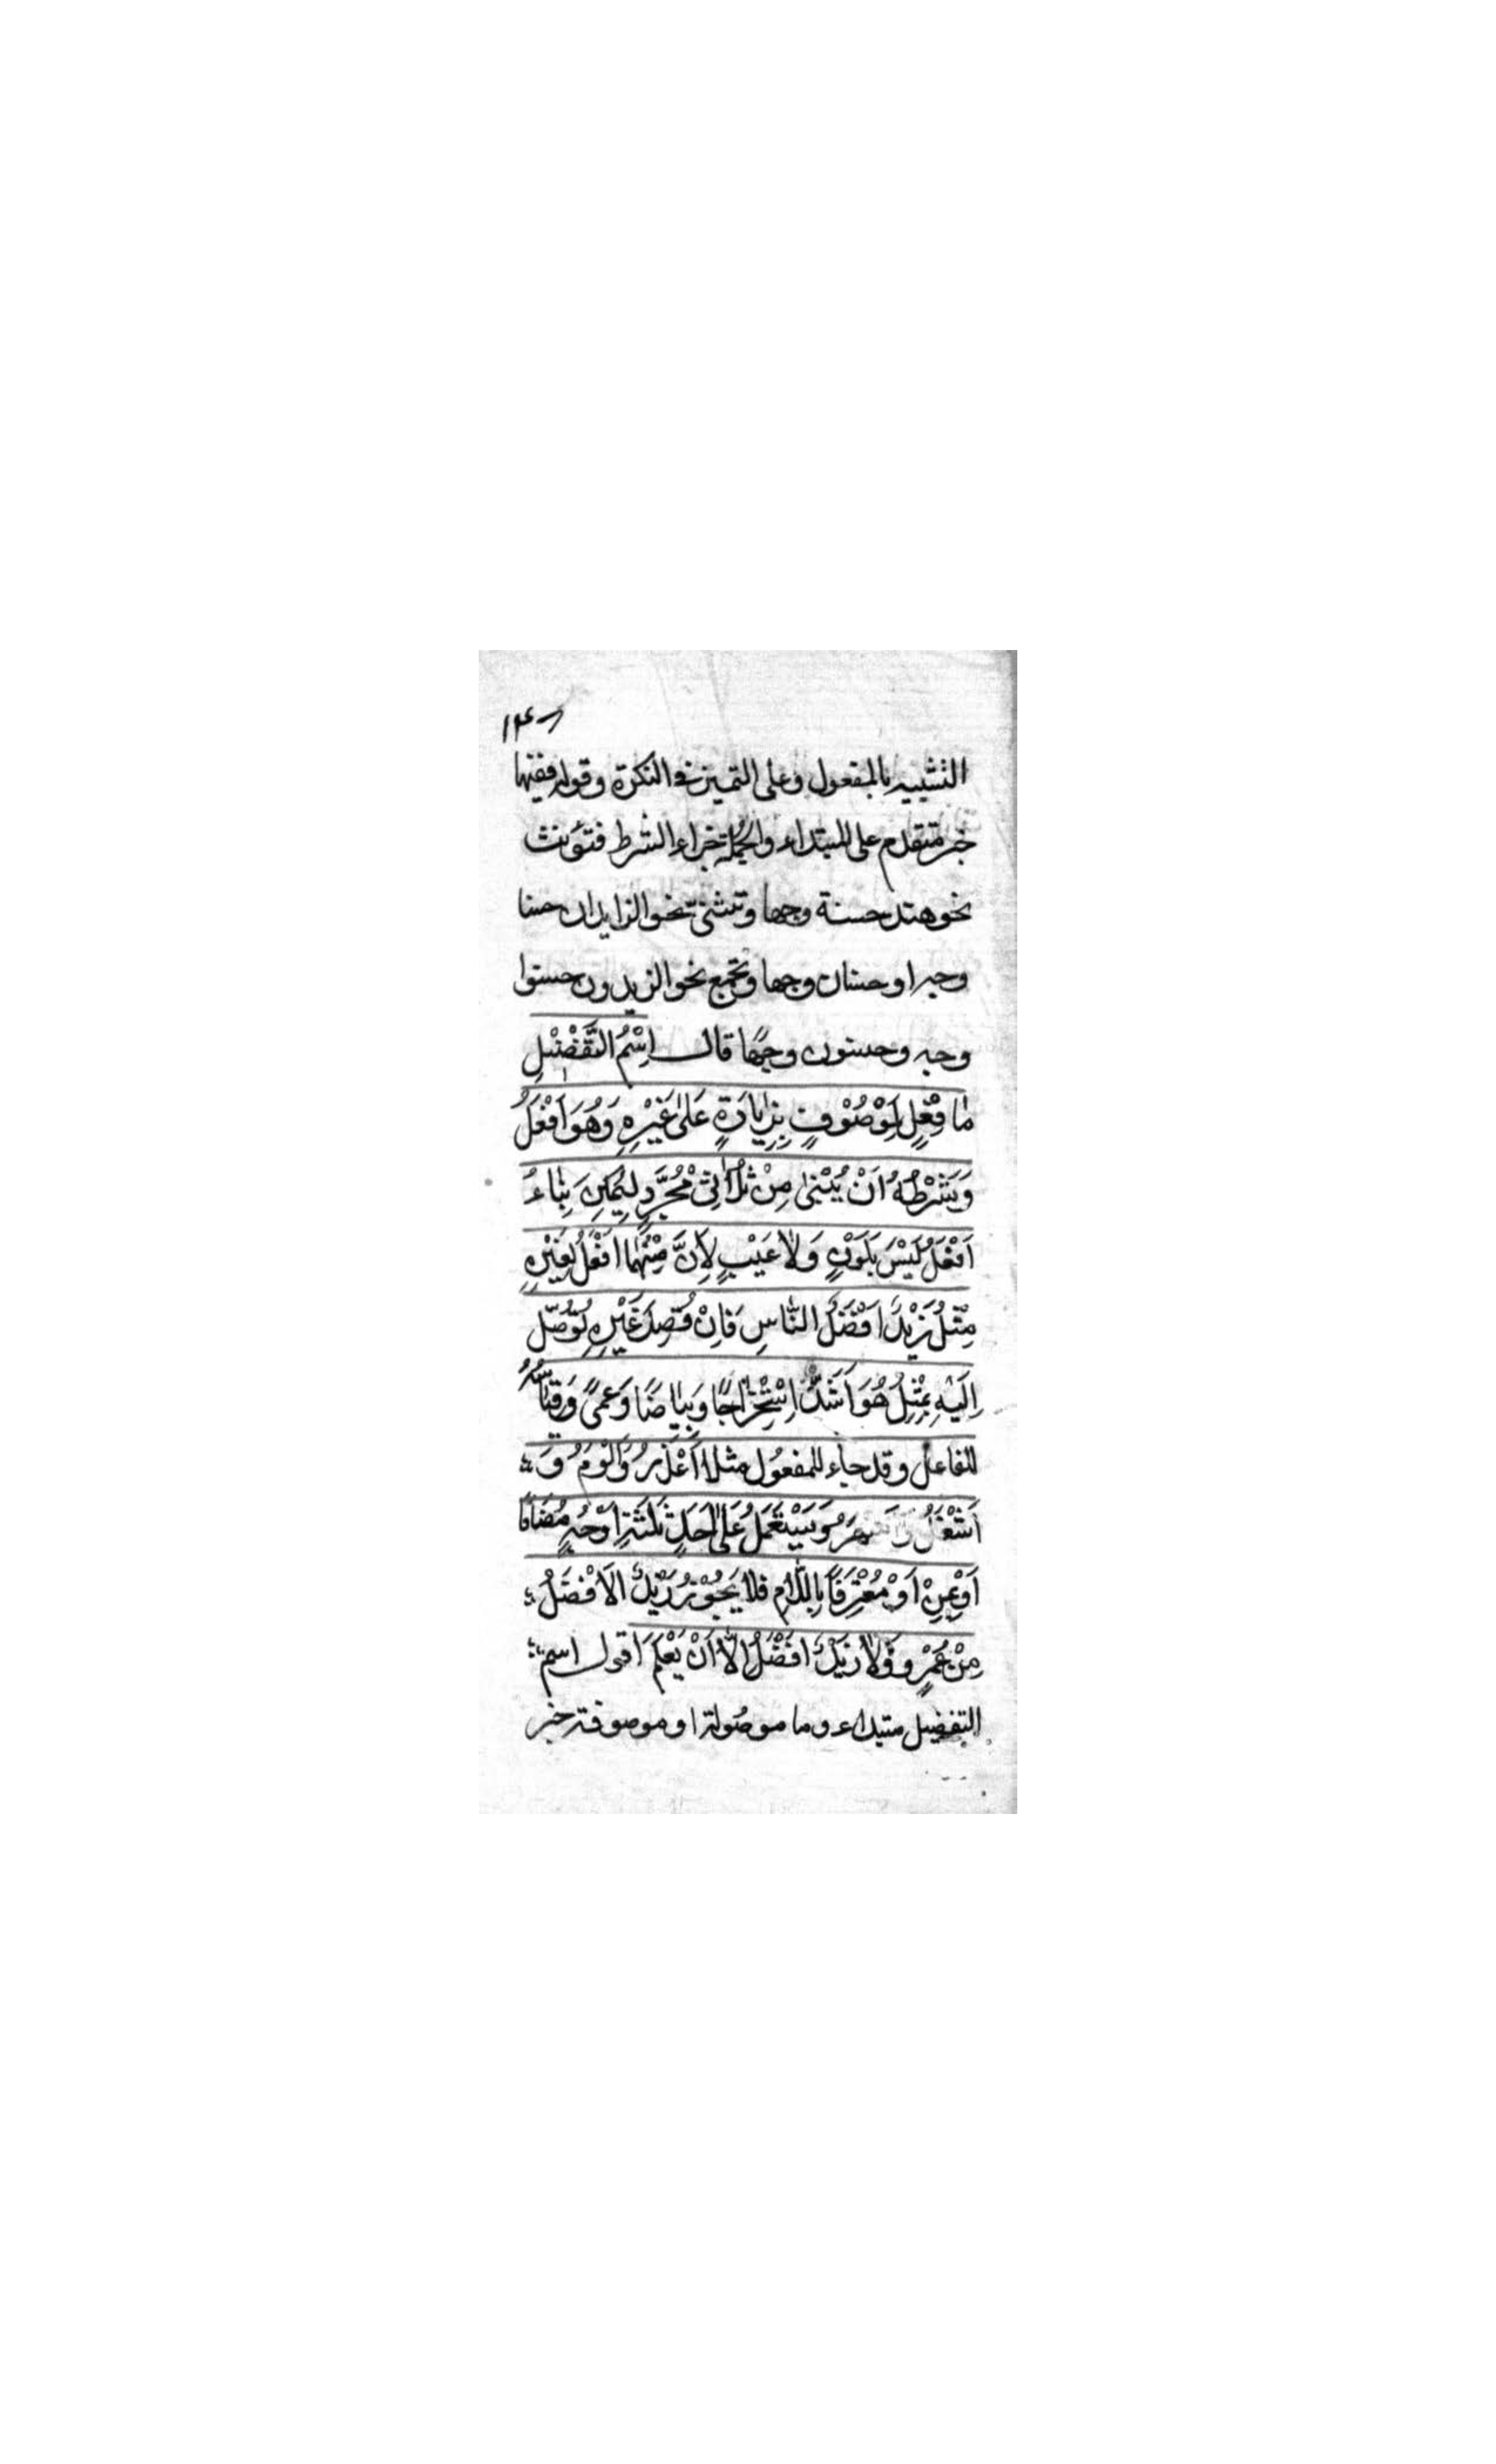 التشبيه بالمفعول وعلى التميز في النكرة وقوله ففيها
خبر متقدم على المبتداء والجملة جزاء الشرط فتؤنث
نحو هند حسنة وجها وتثنى نحو الزيدان حسنا
وجه او حسنان وجها وتجمع نحو الزيدون حسنوا
وجه وحسنون وجهًا قال اِسْمُ التَّفْضِيْلِ
مٰا فِعْلٍ لِمَوْصُوْفٍ بِزِيٰادَةٍ عَلىٰ غَيْرِهِ وَهُوَ اَفْعَلُ
وَشَرْطُهُ اَنْ يُبْنىٰ مِنْ ثُلٰاثِىْ مُجَرَّدٍ لِيُمْكِنَ بِنٰاءُ
اَفْعَلُ لَيْسَ بَلَوْنٍ وَلاٰ عَيْبٍ لِاَنَّ مِنْهُمٰا اَفْعَلُ لِغَيْرِهِ
مِثْلُ زَيْدٌ اَفْضَلُ النّٰاسِ فَاِنْ قُصِدَ غَيْرِهِ تُوُصِّلَ
اِلَيْهِ بِمِثْلِ هُوَ اَشَدُّ اِسْتِخْرٰاجًا وَبَيٰاضًا وَعَمىً وَقِيٰاسُهُ
للفاعل وقد جاء للمفعُول مثل اَعْذَرُ وَاَلْوَمُ وَ
اَشْغَلُ وَ اَشْهَرُ وَيُسْتَعْمَلُ عَلىٰ اَحَدِ ثَلٰثَةِ اَوْجُهٍ مُضٰافًا
اَوْ بِمِنْ اَوْ مُعَرَّفًا بِاللّٰامِ فلا يَجُوْزُ زَيْدٌ الاَفْضَلُ
مِنْ عَمْرٍو وَلاٰ زَيْدٌ افْضَلُ اِلّاٰ اَنْ يُعْلَمَ اقول اسم
التفضيل مبتداء وما موصُولة او موصوفة خبر